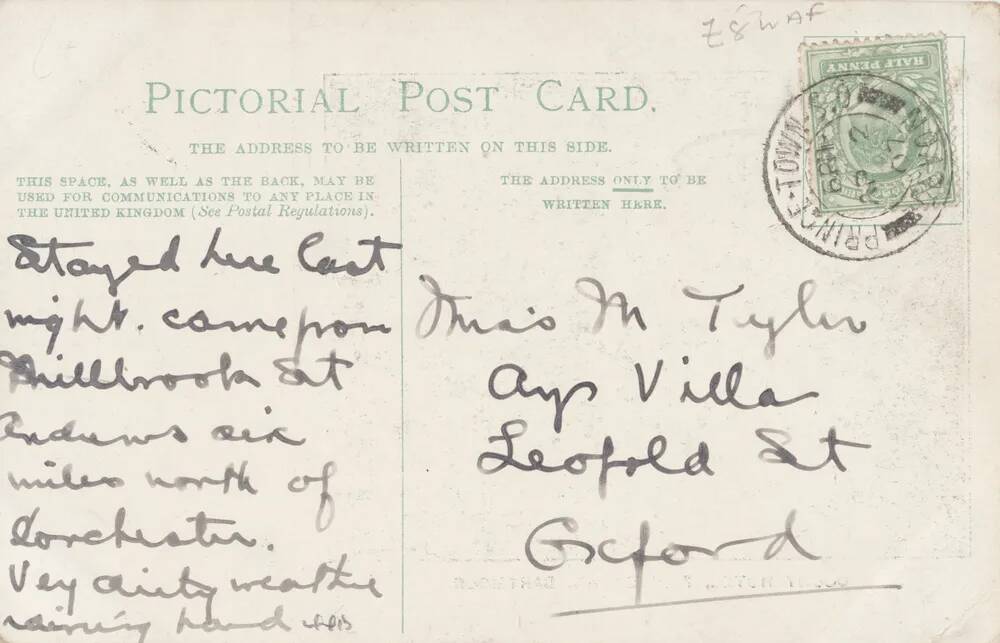 Z8WAF
HALF PENNY
PICTORIAL POST CARD.
THE ADDRESS TO BE WRITTEN ON THIS SIDE.
THIS SPACE, AS WELL AS THE BACK, MAY BE
USED FOR COMMUNICATIONS TO ANY PLACE IN
THE UNITED KINGDOM (See Postal Regulations).
THE ADDRESS ONLY TO BE
WRITTEN HERE.
PRINCE-TOWN S.O
Stayed here last
night. came from
Millbrook St
Andrews six
miles north of
Dorchester.
Vey dirty weather
raining hard
Miss M Tyler
Ays Villa
Leopold St
Oxford